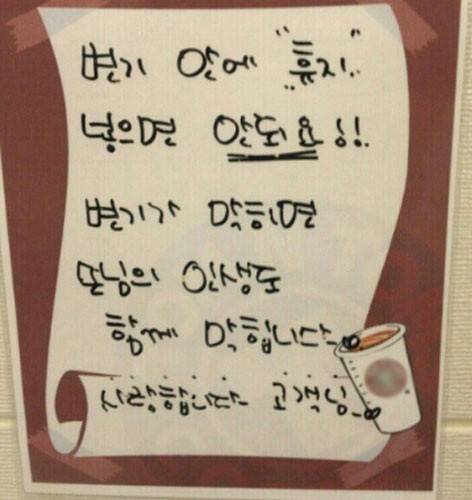 변기 안에 "휴지"
넣으면 안되요!!
변기가 막히면
손님의 인생도
함께 막힙니다
사랑합니다 고객님